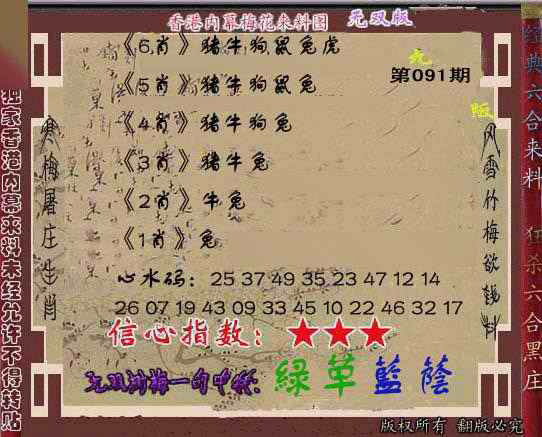 香港内幕梅花来料图 无双版
《6肖》猪牛狗鼠兔虎
《5肖》猪牛狗鼠兔
第091期
《4肖》猪牛狗兔
《3肖》猪牛兔
《2肖》牛兔
《1肖》兔
心水码：25 37 49 35 23 47 12 14
26 07 19 43 09 33 45 10 22 46 32 17
信心指数：★★★
綠草藍蔭
版权所有 翻版必究
独家香港内幕来料未经允许不得转贴
寒梅屠庄生肖
风雪竹梅欲钱料
经典六合来料
狂杀六合黑庄